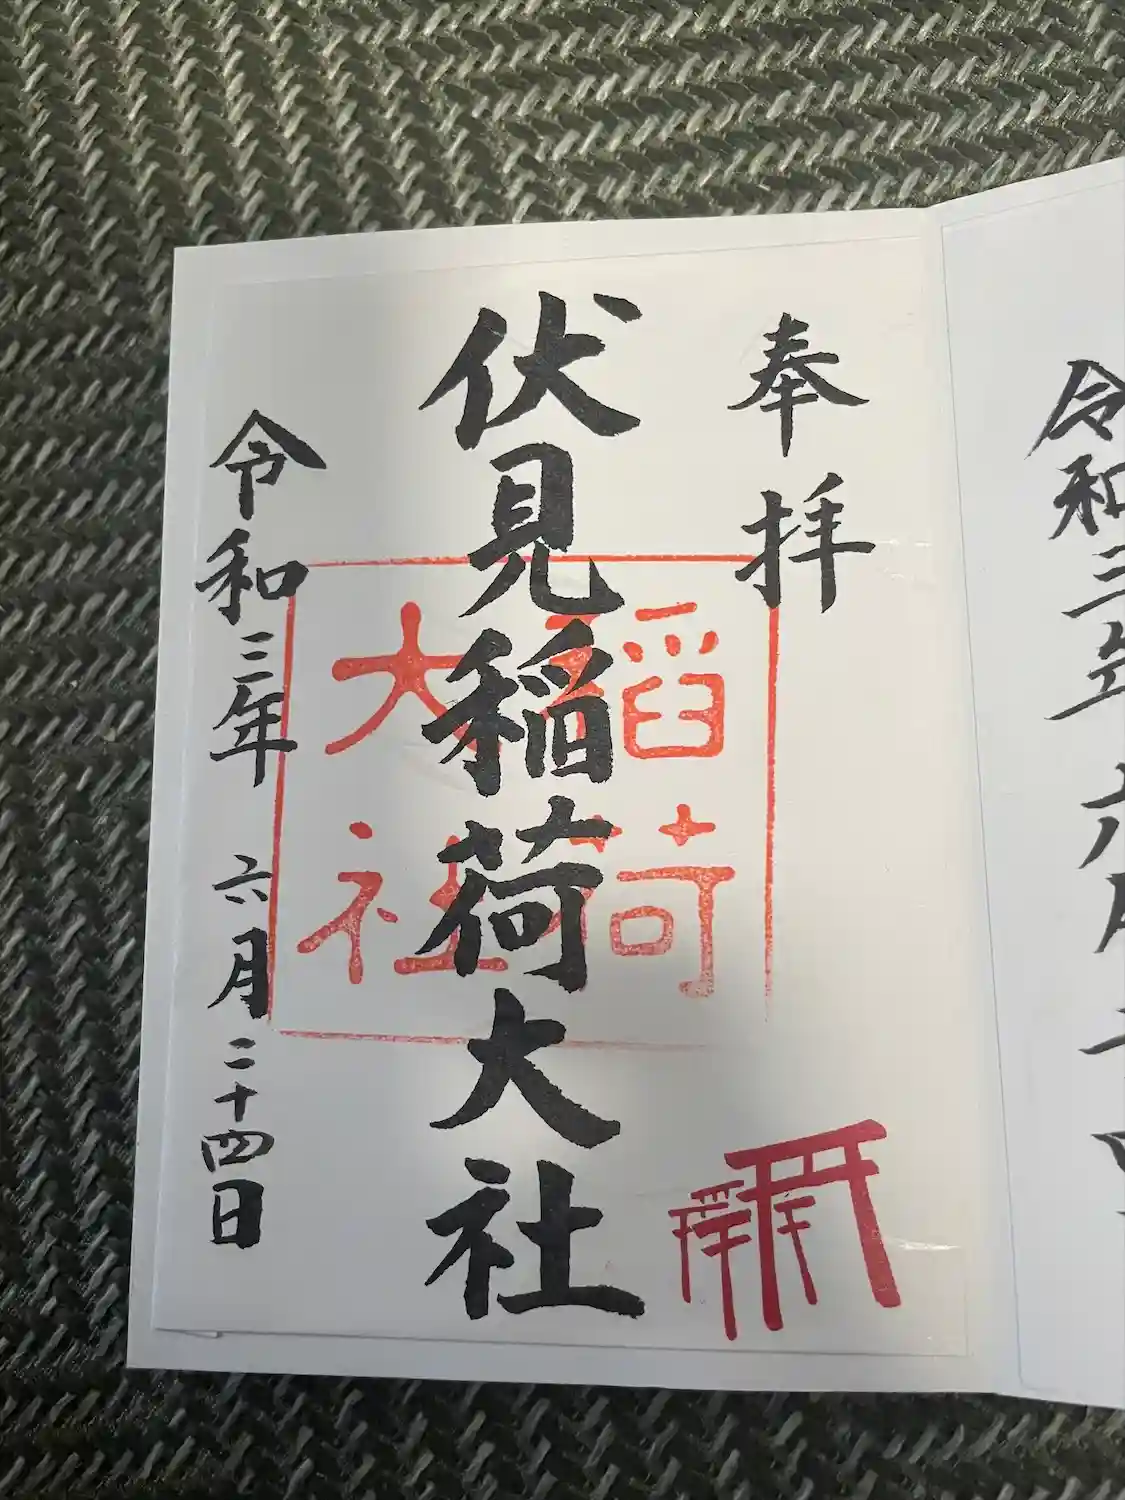 令和三年 六月二十四
奉拝
伏見稲荷大社
稲荷
大社
令和三年 六月二十四日